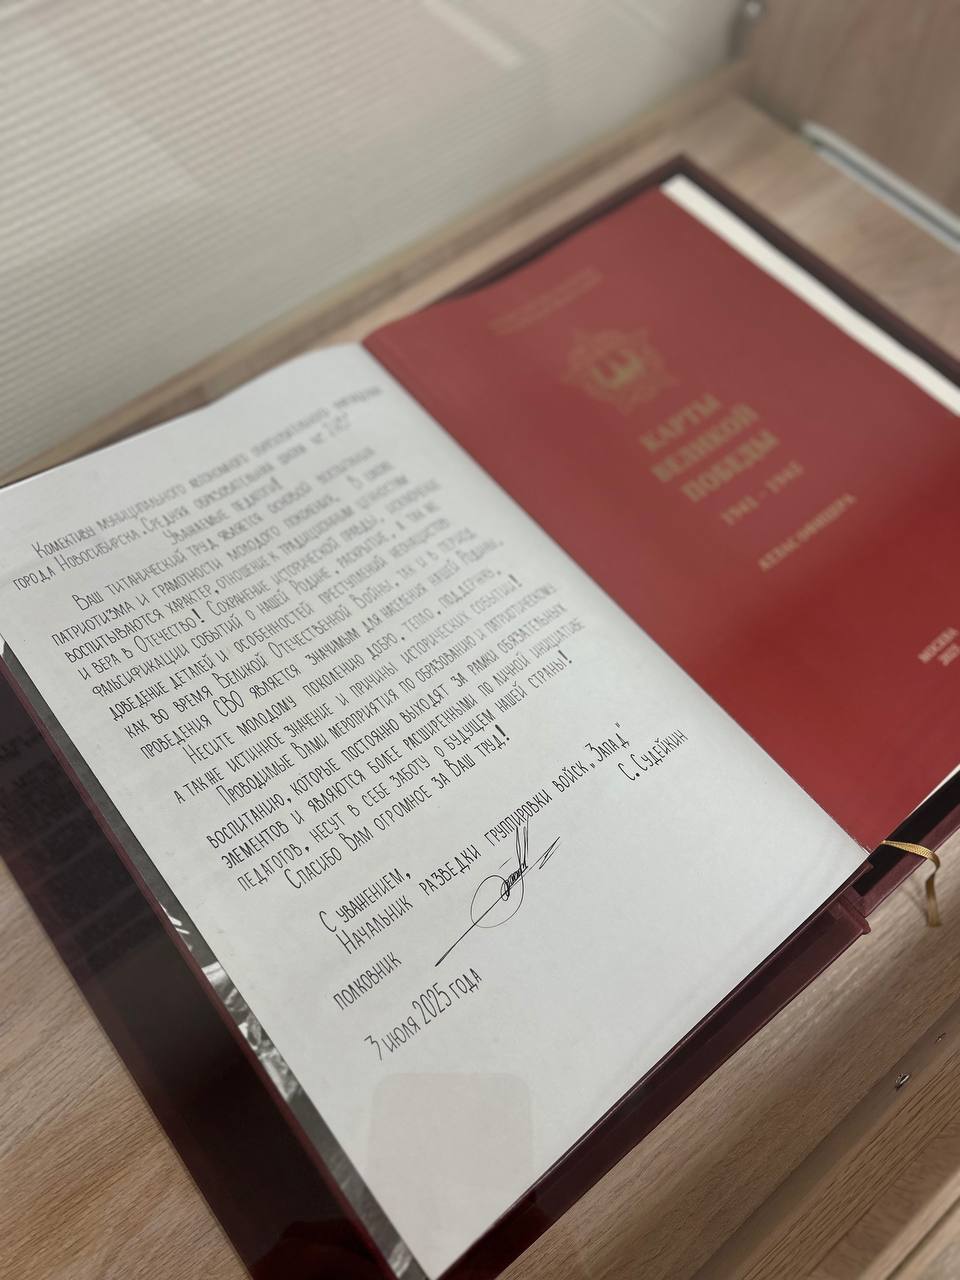 Коллективу муниципального автономного общеобразовательного учреждения
города Новосибирска „Средняя образовательная школа № 212"
Уважаемые педагоги!
Ваш титанический труд является основой воспитания
патриотизма и грамотности молодого поколения. В школе
воспитываются характер, отношение к традиционным ценностям
и вера в Отечество! Сохранение исторической правды, исключение
фальсификации событий о нашей Родине, раскрытие, а так же
доведение деталей и особенностей преступлений неонацистов
как во время Великой Отечественной Войны, так и в период
проведения СВО является значимым для населения нашей Родины.
Несите молодому поколению добро, тепло, поддержку,
а так же истинное значение и причины исторических событий!
Проводимые Вами мероприятия по образованию и патриотическому
воспитанию, которые постоянно выходят за рамки обязательных
элементов и являются более расширенными по личной инициативе
педагогов, несут в себе заботу о будущем нашей страны!
Спасибо Вам огромное за Ваш труд!
С уважением,
Начальник разведки группировки войск „Запад"
полковник
С. Судейкин
3 июля 2025 года
КАРТЫ
ВЕЛИКОЙ
ПОБЕДЫ
1941 - 1945
АТЛАС ОФИЦЕРА
МОСКВА